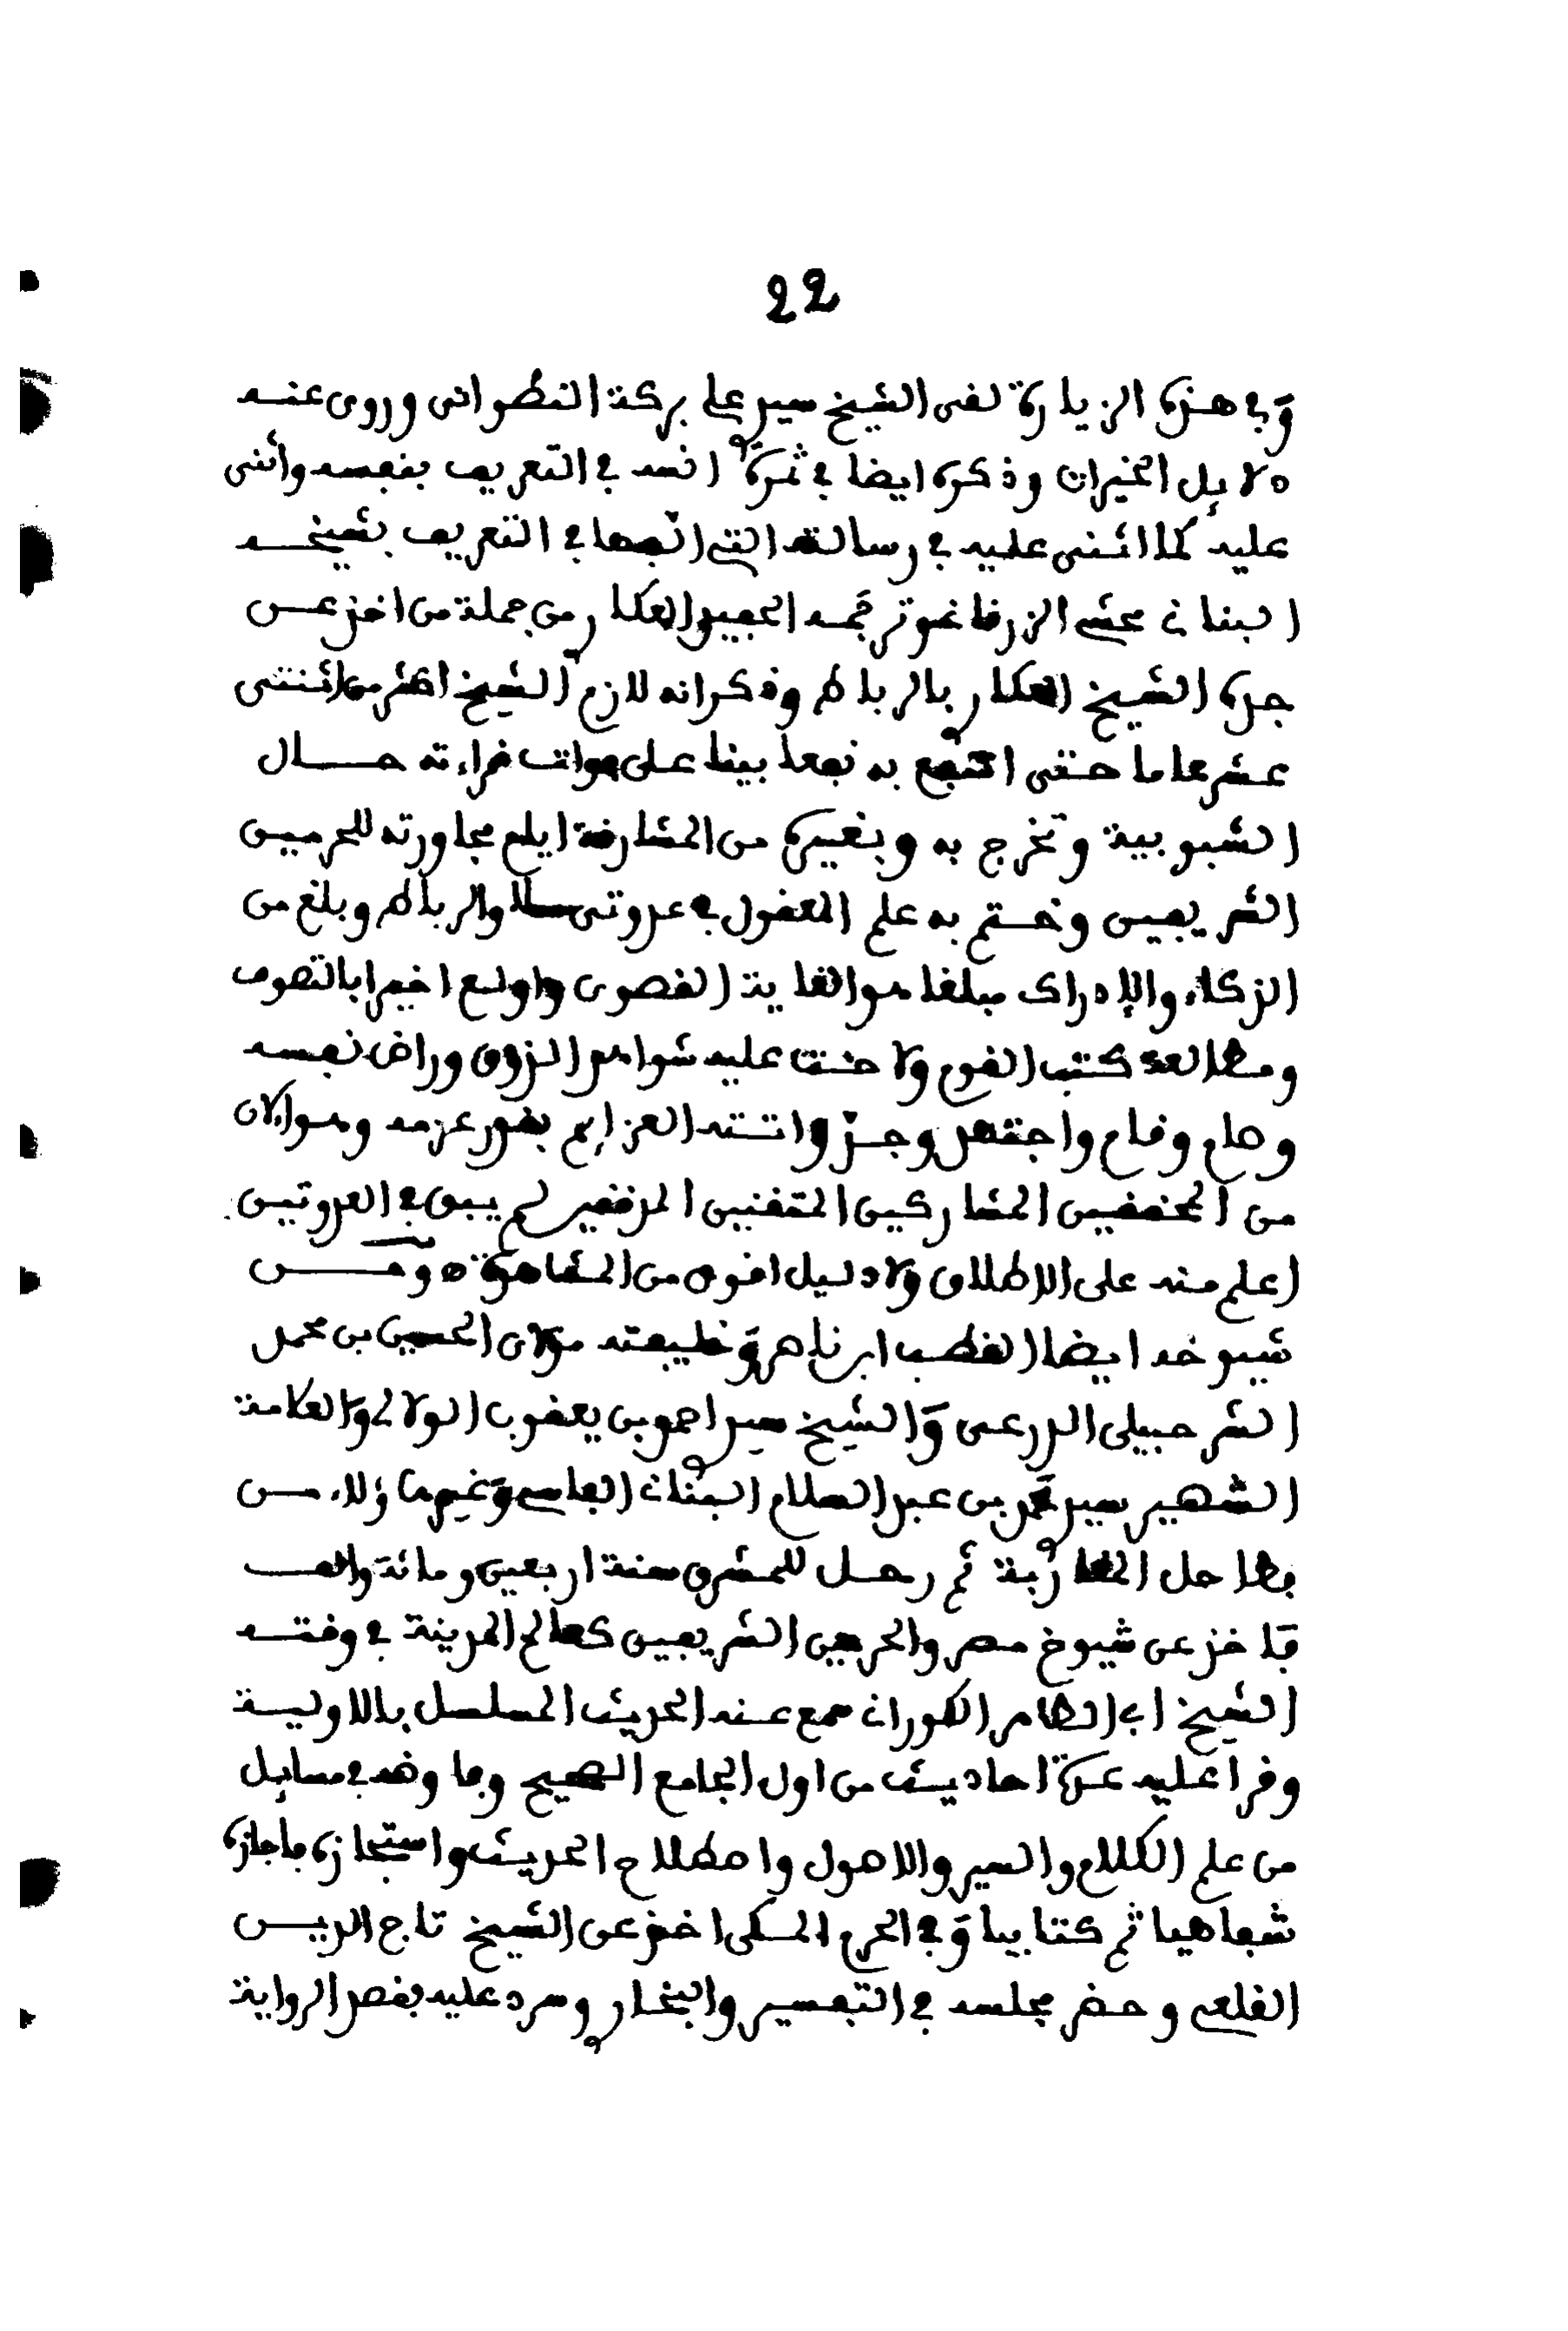 22
وفي هذه الزيارة لقى الشيخ سيدي علي بركة التطواني وروى عنه
دلايل الخيرات وذكره ايضا في ثمرة انسه في التعريف بنفسه وأثنى
عليه كما اثنى عليه في رسالته التي الفها في التعريف بشيخه
البناني محشي الزرقاني وترجمه الحفيد العكاري من جملة من اخذ عن
جده الشيخ العكاري بالرباط وذكر انه لازم الشيخ اكثر من اثنتى
عشر عاما حتى انتفع به نفعا بينا على قراءته حال
الشبوبية وتخرج به وبغيره من المشارقة ايام مجاورته للحرمين
الشريفين وختم به علم المعقول في عدوتى سلا والرباط وبلغ من
الذكاء والإدراك مبلغا هو الغاية القصوى واولع اخيرا بالتصوف
ومطالعة كتب القوم ولاحت عليه شواهد الذوق وراض نفسه
وصام وقام واجتهد وجدّ واتته العزايم بقدر عزمه وهو الان
من المحققين المشاركين المتفنين المدققين لم يبق في العدوتين
اعلم منه على الاطلاق ولا دليل اقوى من المشاهدة ه ومن
شيوخه ايضا القطب ابن ناصر وخليفته مولاي الحسين بن محمد
الشرحبيلى الدرعى والشيخ سيدي احمد بن يعقوب الولالي والعلامة
الشهير سيدي محمد بن عبد السلام البناني الفاسي وغيرهم هؤلاء من
فطاحل المغاربة ثم رحل للمشرق سنة اربعين ومائة والف
فاخذ عن شيوخ مصر والحرمين الشريفين كعالم المدينة في وقته
الشيخ ابي الطاهر الكوراني سمع عنه الحديث المسلسل بالاولية
وقرا عليه عدة احاديث من اول الجامع الصحيح وفاوضه في مسايل
من علم الكلام والسير والاصول واصطلاح الحديث واستجازه فاجازه
شفاهيا ثم كتابيا وفي الحرم المكى اخذ عن الشيخ تاج الدين
القلعي وحضر مجلسه في التفسير والبخاري وسرد عليه بقصد الرواية